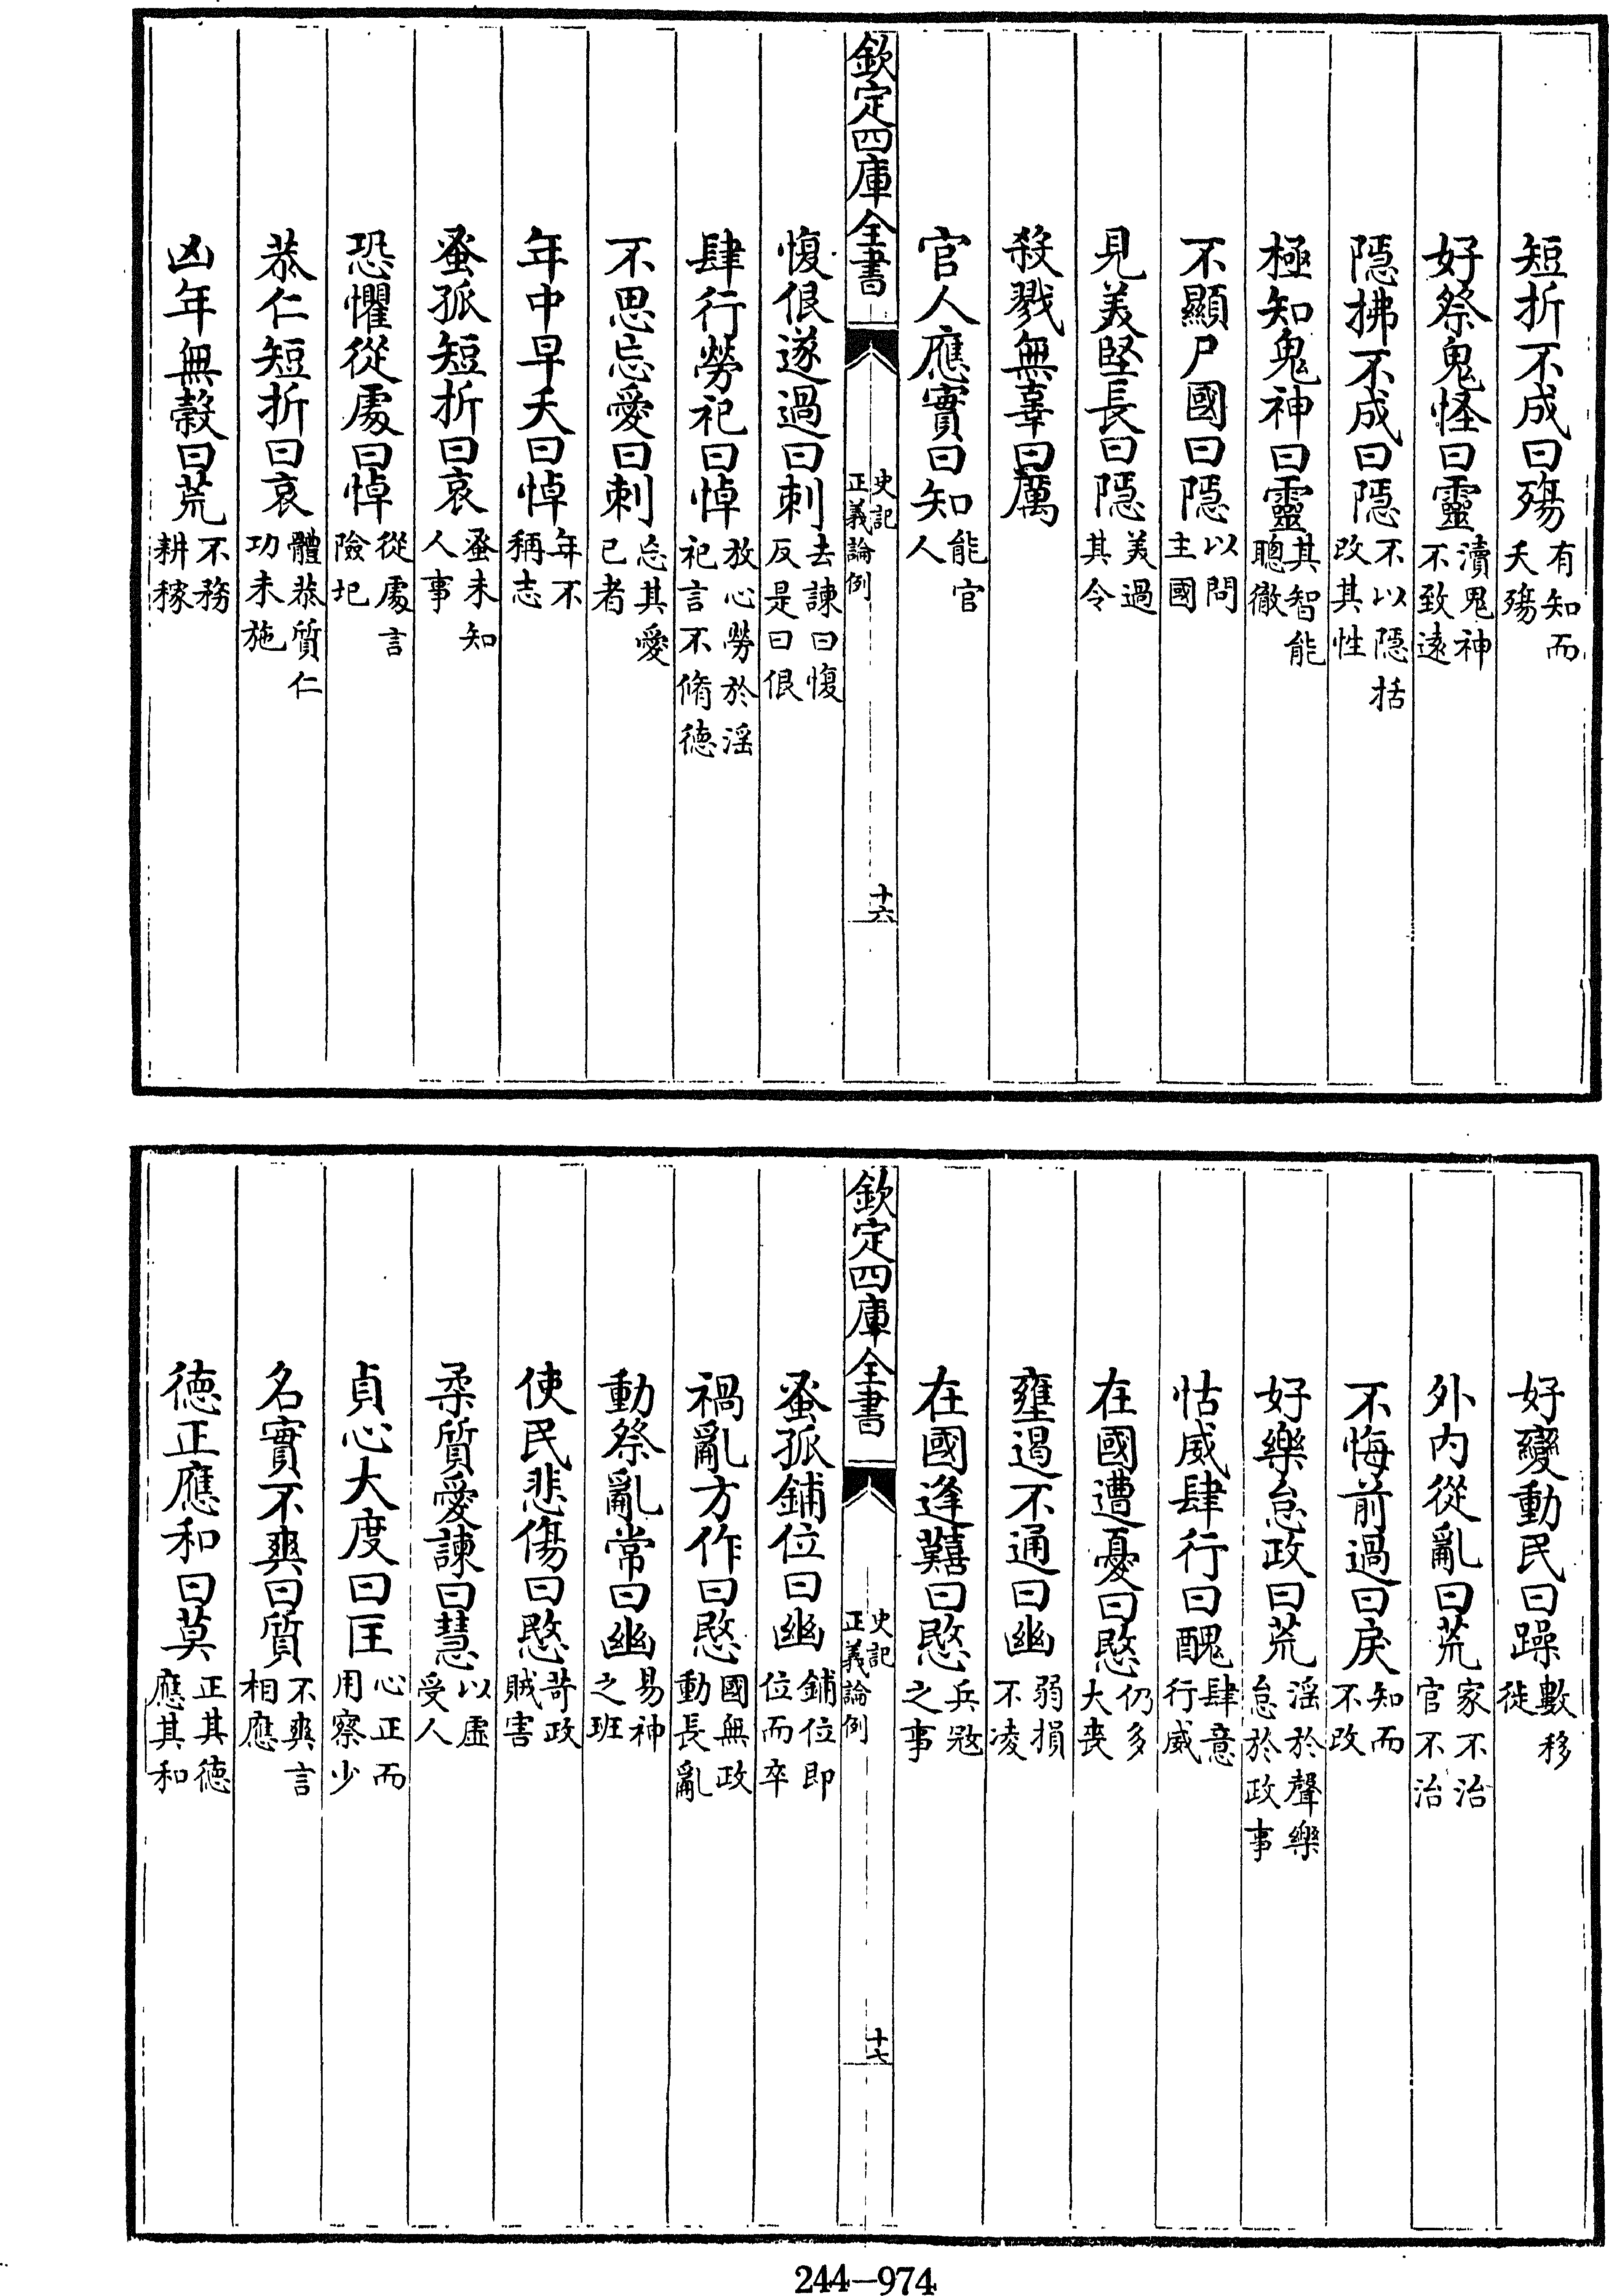 短折不成曰殤有知而夭殤
好祭鬼怪曰靈瀆鬼神不致遠
隠拂不成曰隠不以隠括改其性
極知鬼神曰靈其智能聰徹
不顯尸國曰隠以問主國
見美堅長曰隠美過其令
殺戮無辜曰厲
官人應實曰知能官人
欽定四庫全書
史記正義論例
十六
愎佷遂過曰刺去諫曰愎反是曰佷
肆行勞祀曰悼放心勞於淫祀言不脩德
不思忘愛曰刺忘其愛已者
年中早夭曰悼年不稱志
蚤孤短折曰哀蚤未知人事
恐懼從處曰悼從處言險圮
恭仁短折曰哀體恭質仁功未施
凶年無榖曰荒不務耕稼
好變動民曰躁數移徙
外内從亂曰荒家不治官不治
不悔前過曰戾知而不改
好樂怠政曰荒淫於聲樂怠於政事
怙威肆行曰醜肆意行威
在國遭憂曰愍仍多大喪
壅遏不通曰幽弱損不凌
在國逢囏曰愍兵宼之事
欽定四庫全書
史記正義論例
十七
蚤孤鋪位曰幽鋪位即位而卒
禍亂方作曰愍國無政動長亂
動祭亂常曰幽易神之班
使民悲傷曰愍苛政賊害
柔質愛諫曰慧以虛受人
貞心大度曰匡心正而用察少
名實不爽曰質不爽言相應
德正應和曰莫正其德應其和
244—974